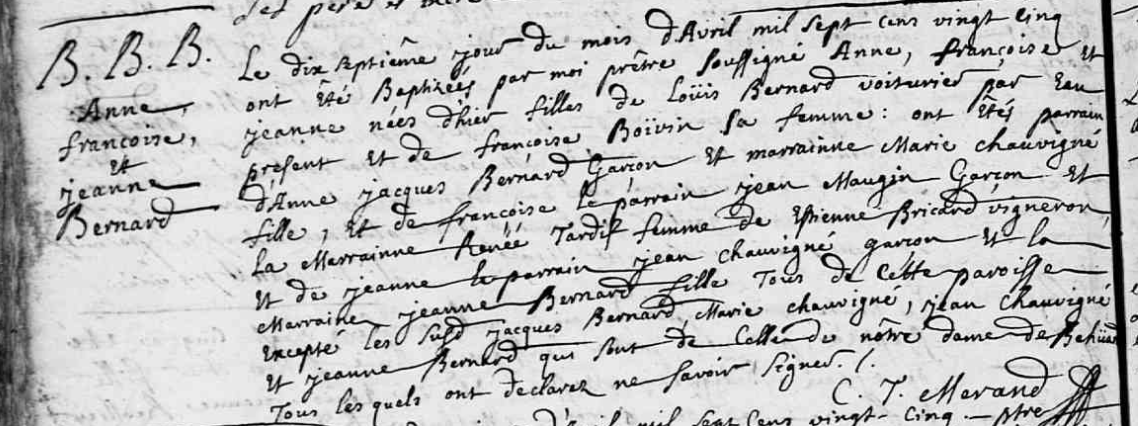 des pere et mere
B. B. B.
Anne,
françoise,
Et
jeanne
Bernard
Le dix septiême jour du mois d'Avril mil sept cens vingt cinq
ont été Baptizéés par moi prêtre soussigné Anne, françoise Et
jeanne néés d'hier filles de Loüis Bernard voiturier par Eau
présent Et de françoise Boïvin sa femme: ont Etés parrain
d'Anne jacques Bernard Garçon Et marrainne Marie chauvigné
fille, Et de françoise le parrain jean Maugin Garçon Et
La Marrainne Renéé Tardif femme de Estienne Bricard vigneron,
Et de jeanne le parrain jean chauvigné garçon Et la
Marraine jeanne Bernard fille Tous de Cette paroisse
Excepté les susd jacques Bernard Marie chauvigné, jean chauvigné
Et jeanne Bernard qui sont de Celle de nôtre dame de Behüard
Tous lesquels ont declarez ne savoir signer. /.
C. T. Merand
ptre
mil sept Cens vingt-cinq